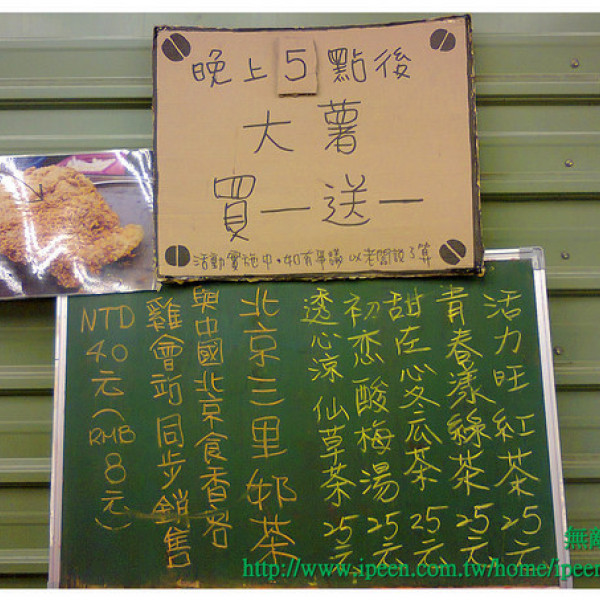 晚上5點後
大薯
買一送一
活動實施中。如有爭議 以老闆說了算
活力旺 紅茶 25元
青春漾 綠茶 25元
甜在心冬瓜茶 25元
初恋酸梅湯 25元
透心涼 仙草茶 25元
北京三里邨茶
與中國北京食香客
雞會站 同步銷售
NTD 40元(RMB 8元)
無
http://www.ipeen.com.tw/home/ipeen